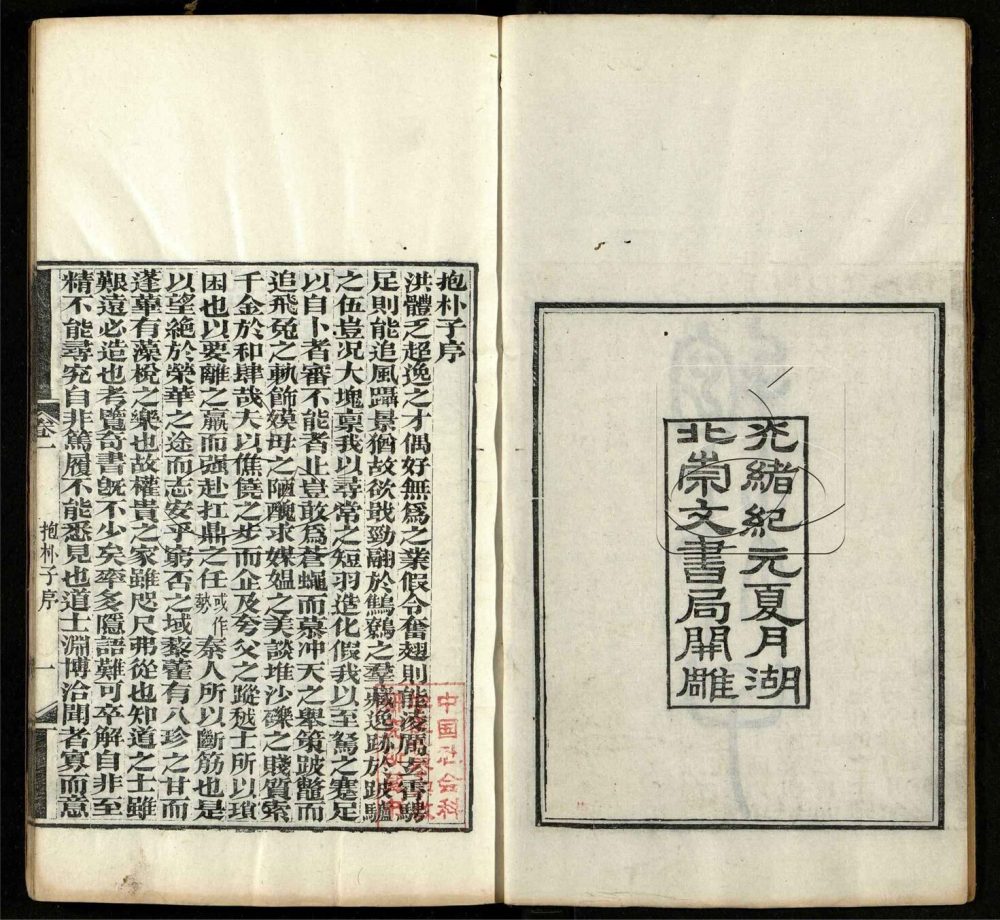 光緒紀元夏月湖
北崇文書局開雕
抱朴子序
洪體乏超逸之才偶好無爲之業假令奮翅則能淩厲玄霄騁
足則能追風躡景猶故欲戢勁翮於鷦鷃之羣藏逸跡於跛驢
之伍豈况大塊稟我以尋常之短羽造化假我以至駑之蹇足
以自卜者審不能者止豈敢爲蒼蠅而慕冲天之舉策跛鼈而
追飛兔之軌飾嫫母之陋醜求媒媼之美談堆沙礫之賤質索
千金於和肆哉夫以僬僥之步而企及夸父之蹤士所以瑣
困也以要離之羸而强赴扛鼎之任或作勢秦人所以斷筋也是
以望絶於榮華之途而志安乎窮否之域藜藿有八珍之甘而
蓬蓽有藻梲之樂也故權貴之家雖咫尺弗從也知道之士雖
艱遠必造也考覽奇書旣不少矣率多隱語難可卒解自非至
精不能尋究自非篤履不能悉見也道士淵博洽聞者寡而意
卷一 抱朴子序 一
中国社会科